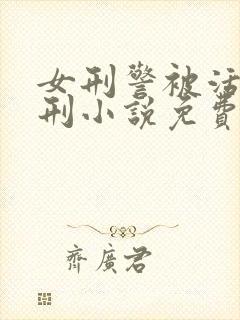 女刑警被活
刑小説免費
齊廣君